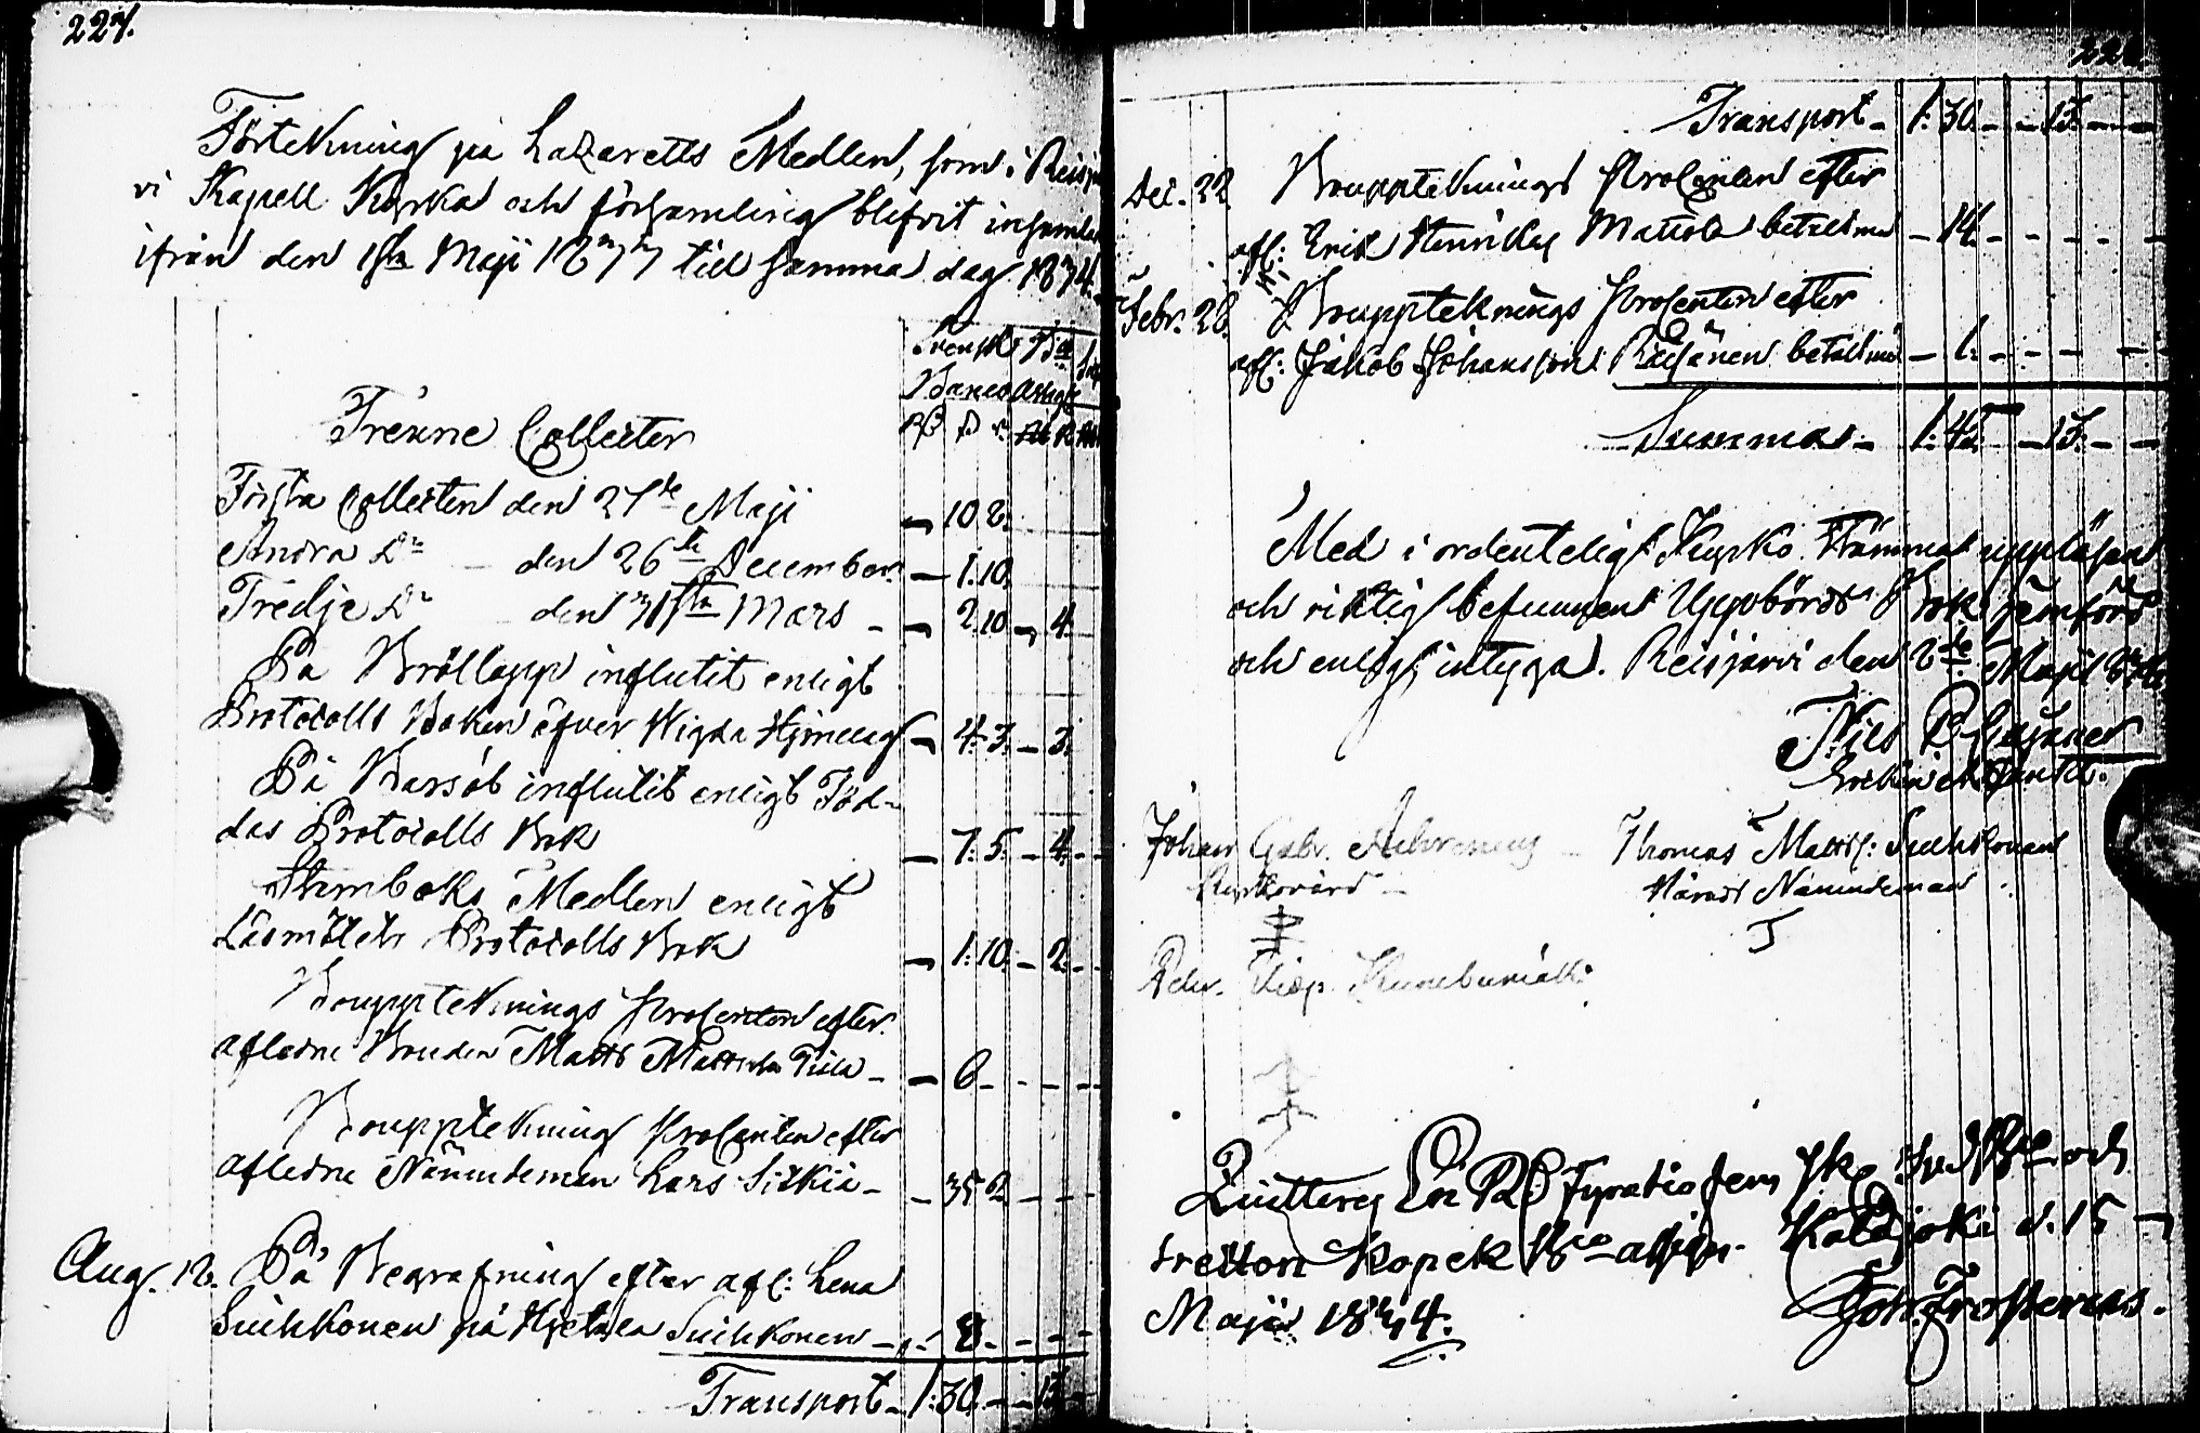 227.
Förtekning på Lazaretts Medlen, som i Reisjär
vi Kapell Kyrka och församling blifvit insamlade
ifrån den 1sta Maji 1833 till samma dag 1834.
Svensk
Banco Assign
Trenne Collecter
Första Collecten den 27de Maji – 10 2.
Andra Do – den 26te December – 1.10.
Tredje Do den 31sta Mars – – 2.10 – 4.
På Bröllopp influtit enligt
Protocolls Boken öfver Wigda Hjonelag – 4. 3. – 3.
På Barsöl influtit enligt Föd-
das Protocolls Bok – 7. 5. – 4. –
Stamboks Medlen enligt
Läsmötets Protocolls Bok – 1. 10. – 2. –
Boupptecknings Procenten efter
afledne Bonden Matts Mattson Tiila – – 6 – – –
Bouppteckning Procenten efter
afledne Nämndeman Lars Sitkiä – – 35 2 – – –
Aug. 12. På Begrafning efter afl: Lena
Suihkonen på Hjetala Suihkonen – – 8. – – –
Transport – 1:30. – – 13 –
Transport – 1:30. – – 13. – –
Dec. 22. Bouppteknings Procenten efter
afl: Erik Henriks Mattola betalt med – 14. – – – –
Febr. 28. Bouppteknings Procenten efter
afl: Jakob Johansson Räisänen betalt med – 1. – – – –
Summa – 1:45. – 13. – –
Med i ordentelig Kyrko Stämma uppläsen
och riktig befunnen Uppbörds Bok jemförd
och enlig, intyga. Reisjärvi den 2de Maji 1834
Nils
Johan Gabr. – Thomas Matts: Suihkonen
Kyrkovärd – Härads Nämndeman
Quitteras En RD fyratio fem sk. Sv. Bco och
tretton Kopek Bco assign. Kalajoki d. 15
Maji 1834. Joh. Frosterus.